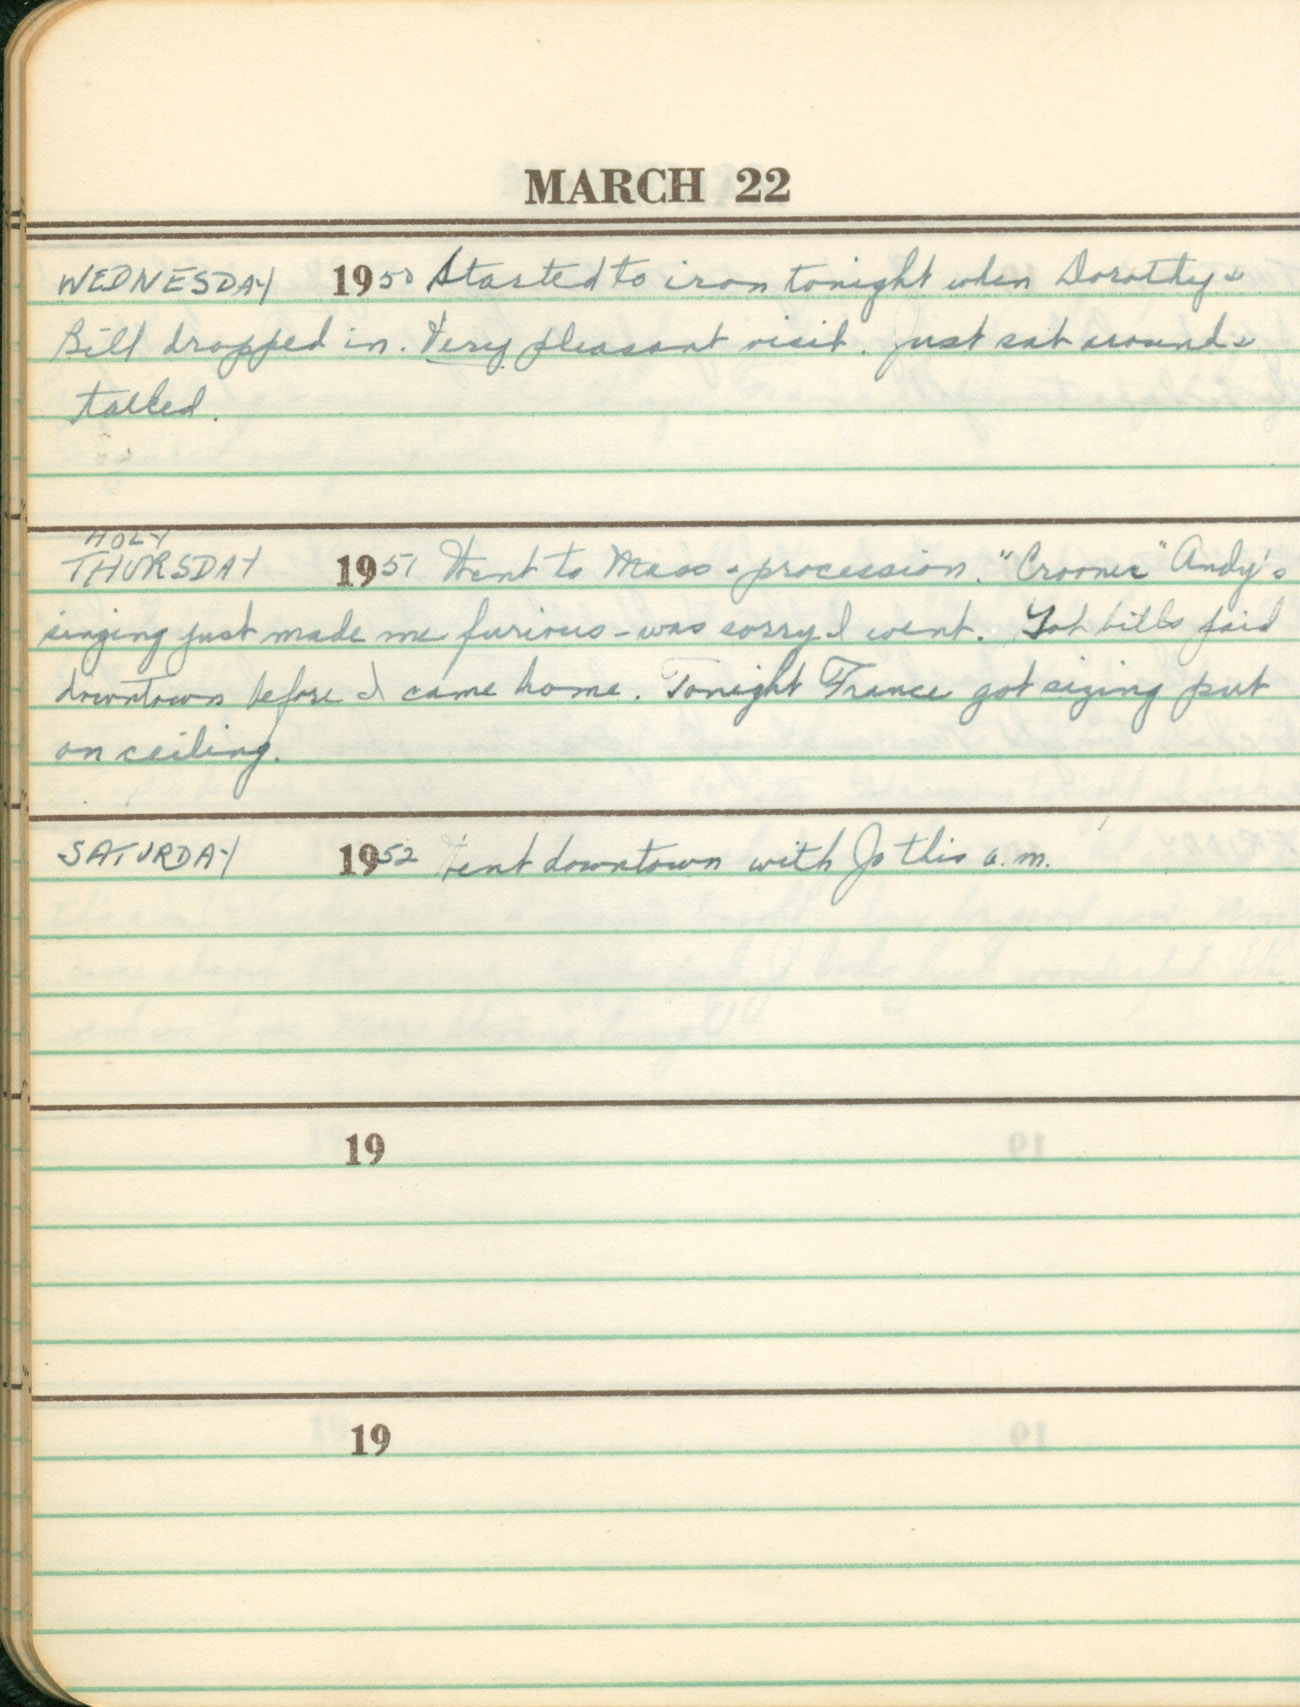 MARCH 22
WEDNESDAY 1950 Started to iron tonight when Dorothy &
Bill dropped in. Very pleasant visit. Just sat around &
talked.
HOLY
THURSDAY 1951 Went to Mass & procession. "Crooner" Andy's
singing just made me furious - was sorry I went. Got bills paid
downtown before I came home. Tonight France got sizing put
on ceiling.
SATURDAY 1952 Went downtown with Jo this a.m.
19
19